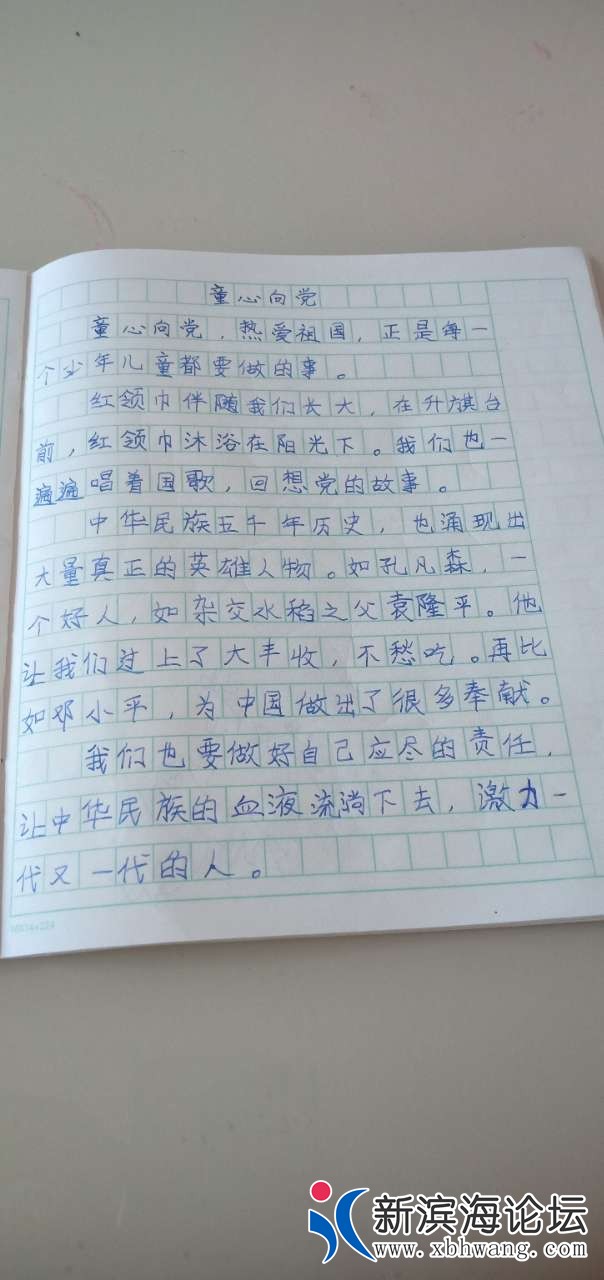 童心向党
童心向党，热爱祖国，正是每一
个少年儿童都要做的事。
红领巾伴随我们长大，在升旗台
前，红领巾沐浴在阳光下。我们也一
遍遍唱着国歌，回想党的故事。
中华民族五千年历史，也涌现出
大量真正的英雄人物。如孔凡森，一
个好人，如杂交水稻之父袁隆平。他
让我们过上了大丰收，不愁吃。再比
如邓小平，为中国做出了很多奉献。
我们也要做好自己应尽的责任，
让中华民族的血液流淌下去，激力一
代又一代的人。
新滨海论坛
www.xbhwang.com